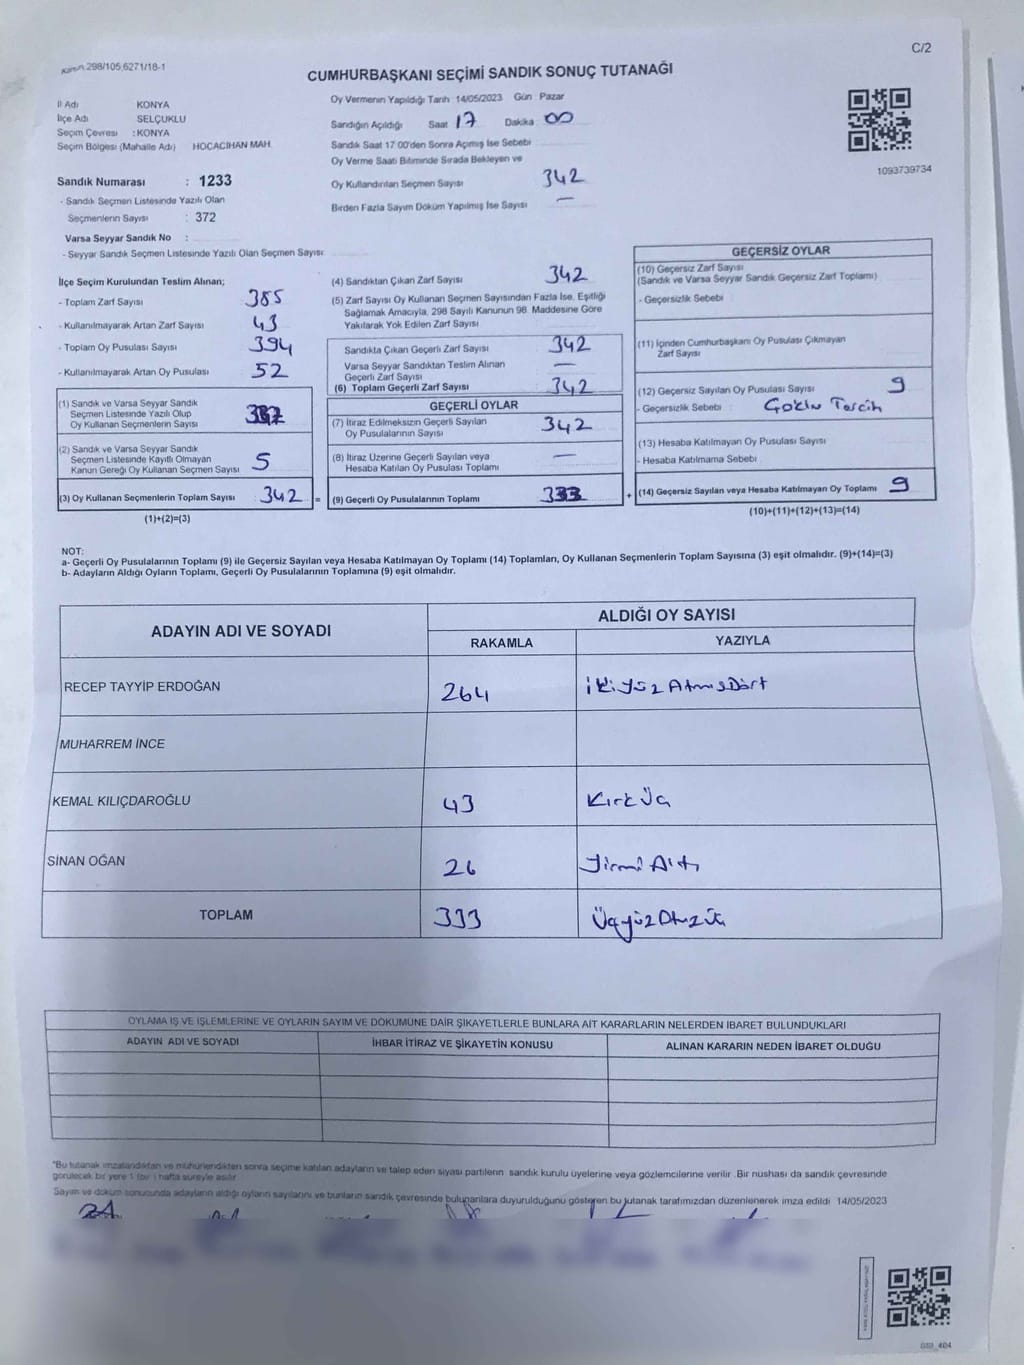 Kanun 298/105,6271/18-1
C/2
CUMHURBAŞKANI SEÇİMİ SANDIK SONUÇ TUTANAĞI
İl Adı KONYA
İlçe Adı SELÇUKLU
Seçim Çevresi : KONYA
Seçim Bölgesi (Mahalle Adı) HOCACİHAN MAH.
Sandık Numarası : 1233
- Sandık Seçmen Listesinde Yazılı Olan
Seçmenlerin Sayısı : 372
Varsa Seyyar Sandık No :
- Seyyar Sandık Seçmen Listesinde Yazılı Olan Seçmen Sayısı:
Oy Vermenin Yapıldığı Tarih 14/05/2023 Gün Pazar
Sandığın Açıldığı Saat 17 Dakika 00
Sandık Saat 17 00'den Sonra Açımış İse Sebebi
Oy Verme Saati Bitiminde Sırada Bekleyen ve
Oy Kullandırılan Seçmen Sayısı 342
Birden Fazla Sayım Döküm Yapılmış İse Sayısı —
1093739734
İlçe Seçim Kurulundan Teslim Alınan;
- Toplam Zarf Sayısı 385
- Kullanılmayarak Artan Zarf Sayısı 43
- Toplam Oy Pusulası Sayısı 394
- Kullanılmayarak Artan Oy Pusulası 52
(1) Sandık ve Varsa Seyyar Sandık
Seçmen Listesinde Yazılı Olup
Oy Kullanan Seçmenlerin Sayısı 337
(2) Sandık ve Varsa Seyyar Sandık
Seçmen Listesinde Kayıtlı Olmayan
Kanun Gereği Oy Kullanan Seçmen Sayısı 5
(3) Oy Kullanan Seçmenlerin Toplam Sayısı 342 =
(1)+(2)=(3)
(4) Sandıktan Çıkan Zarf Sayısı 342
(5) Zarf Sayısı Oy Kullanan Seçmen Sayısından Fazla İse, Eşitliği
Sağlamak Amacıyla, 298 Sayılı Kanunun 98. Maddesine Göre
Yakılarak Yok Edilen Zarf Sayısı
Sandıkta Çıkan Geçerli Zarf Sayısı 342
Varsa Seyyar Sandıktan Teslim Alınan
Geçerli Zarf Sayısı —
(6) Toplam Geçerli Zarf Sayısı 342
GEÇERLİ OYLAR
(7) İtiraz Edilmeksizin Geçerli Sayılan
Oy Pusulalarının Sayısı 342
(8) İtiraz Üzerine Geçerli Sayılan veya
Hesaba Katılan Oy Pusulası Toplamı —
(9) Geçerli Oy Pusulalarının Toplamı 333 +
GEÇERSİZ OYLAR
(10) Geçersiz Zarf Sayısı
(Sandık ve Varsa Seyyar Sandık Geçersiz Zarf Toplamı)
- Geçersizlik Sebebi
(11) İçinden Cumhurbaşkanı Oy Pusulası Çıkmayan
Zarf Sayısı
(12) Geçersiz Sayılan Oy Pusulası Sayısı 9
- Geçersizlik Sebebi Çoklu Tercih
(13) Hesaba Katılmayan Oy Pusulası Sayısı
- Hesaba Katılmama Sebebi
(14) Geçersiz Sayılan veya Hesaba Katılmayan Oy Toplamı 9
(10)+(11)+(12)+(13)=(14)
NOT:
a- Geçerli Oy Pusulalarının Toplamı (9) ile Geçersiz Sayılan veya Hesaba Katılmayan Oy Toplamı (14) Toplamları, Oy Kullanan Seçmenlerin Toplam Sayısına (3) eşit olmalıdır. (9)+(14)=(3)
b- Adayların Aldığı Oyların Toplamı, Geçerli Oy Pusulalarının Toplamına (9) eşit olmalıdır.
ADAYIN ADI VE SOYADI ALDIĞI OY SAYISI
RAKAMLA YAZIYLA
RECEP TAYYİP ERDOĞAN 264 İkiyüz Atmış Dört
MUHARREM İNCE
KEMAL KILIÇDAROĞLU 43 Kırk Üç
SİNAN OĞAN 26 Yirmi Altı
TOPLAM 333 Üçyüz Otuz Üç
OYLAMA İŞ VE İŞLEMLERİNE VE OYLARIN SAYIM VE DÖKÜMÜNE DAİR ŞİKAYETLERLE BUNLARA AİT KARARLARIN NELERDEN İBARET BULUNDUKLARI
ADAYIN ADI VE SOYADI İHBAR İTİRAZ VE ŞİKAYETİN KONUSU ALINAN KARARIN NEDEN İBARET OLDUĞU
*Bu tutanak imzalandıktan ve mühürlendikten sonra seçime katılan adayların ve talep eden siyasi partilerin sandık kurulu üyelerine veya gözlemcilerine verilir .Bir nüshası da sandık çevresinde
görülecek bir yere 1 (bir ) hafta süreyle asılır
Sayım ve döküm sonucunda adayların aldığı oyların sayılarını ve bunların sandık çevresinde bulunanlara duyurulduğunu gösteren bu tutanak tarafımızdan düzenlenerek imza edildi 14/05/2023